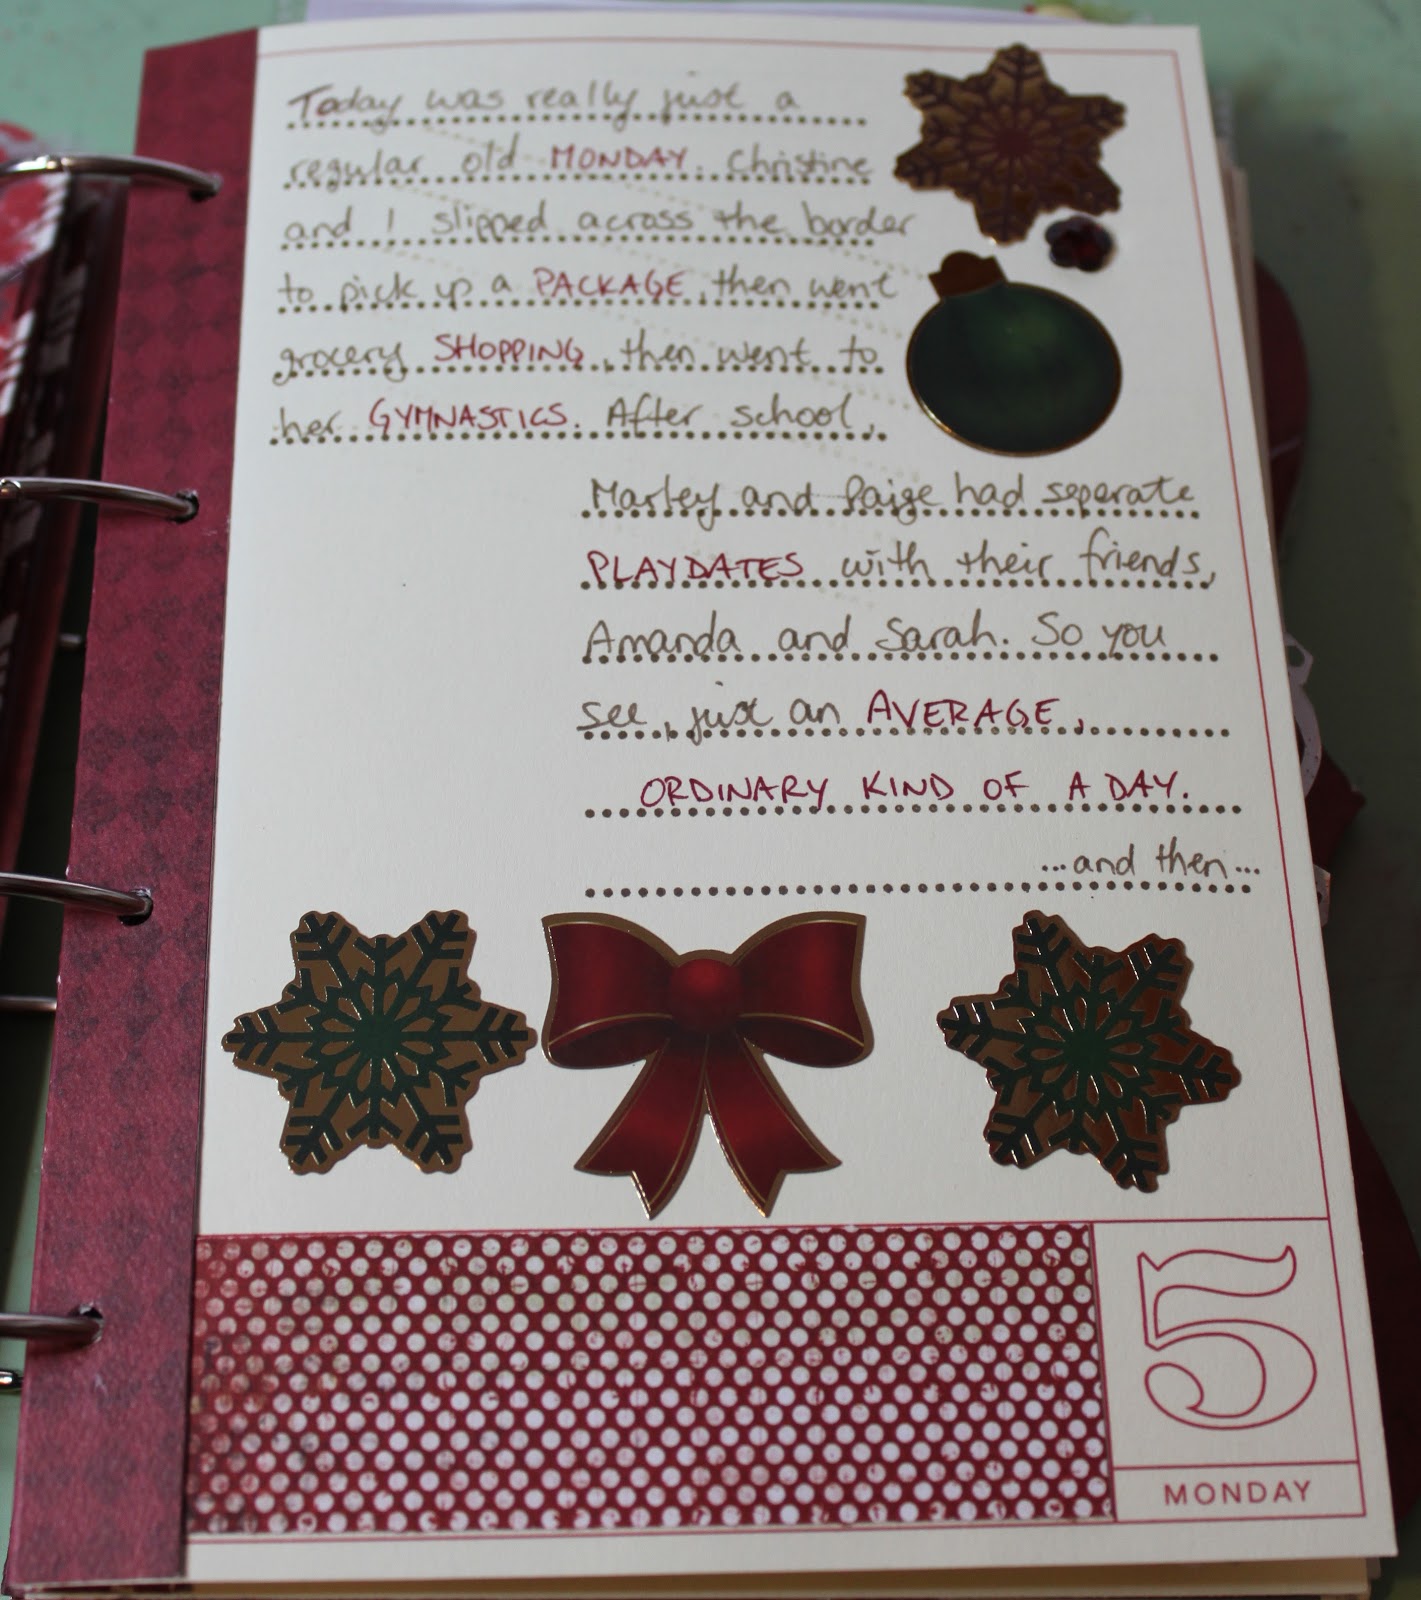 Today was really just a
regular old MONDAY. Christine
and I slipped across the border
to pick up a PACKAGE, then went
grocery SHOPPING, then went to
her GYMNASTICS. After school,
Marley and Paige had seperate
PLAYDATES with their friends,
Amanda and Sarah. So you
see, just an AVERAGE,
ORDINARY KIND OF A DAY.
...and then...
5
MONDAY